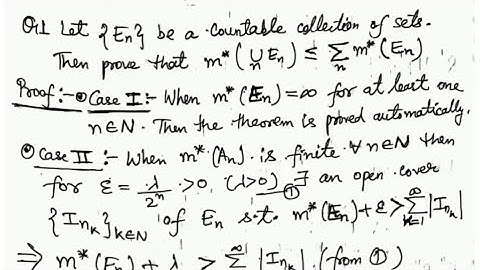 Q.1 Let {En} be a countable collection of sets.
Then prove that m*(∪n En) ≤ Σn m*(En)
Proof:- Case I:- When m*(En)=∞ for at least one
n∈N. Then the theorem is proved automatically.
Case II:- When m*(An) is finite ∀ n∈N then
for ε = λ/2^n > 0, (λ>0) ① ∃ an open cover
{I_{n_k}}_{k∈N} of En s.t. m*(En)+ε > Σ_{k=1}^∞ |I_{n_k}|
⇒ m*(En) + λ > Σ^∞ |I_{n_k}| (from ①)